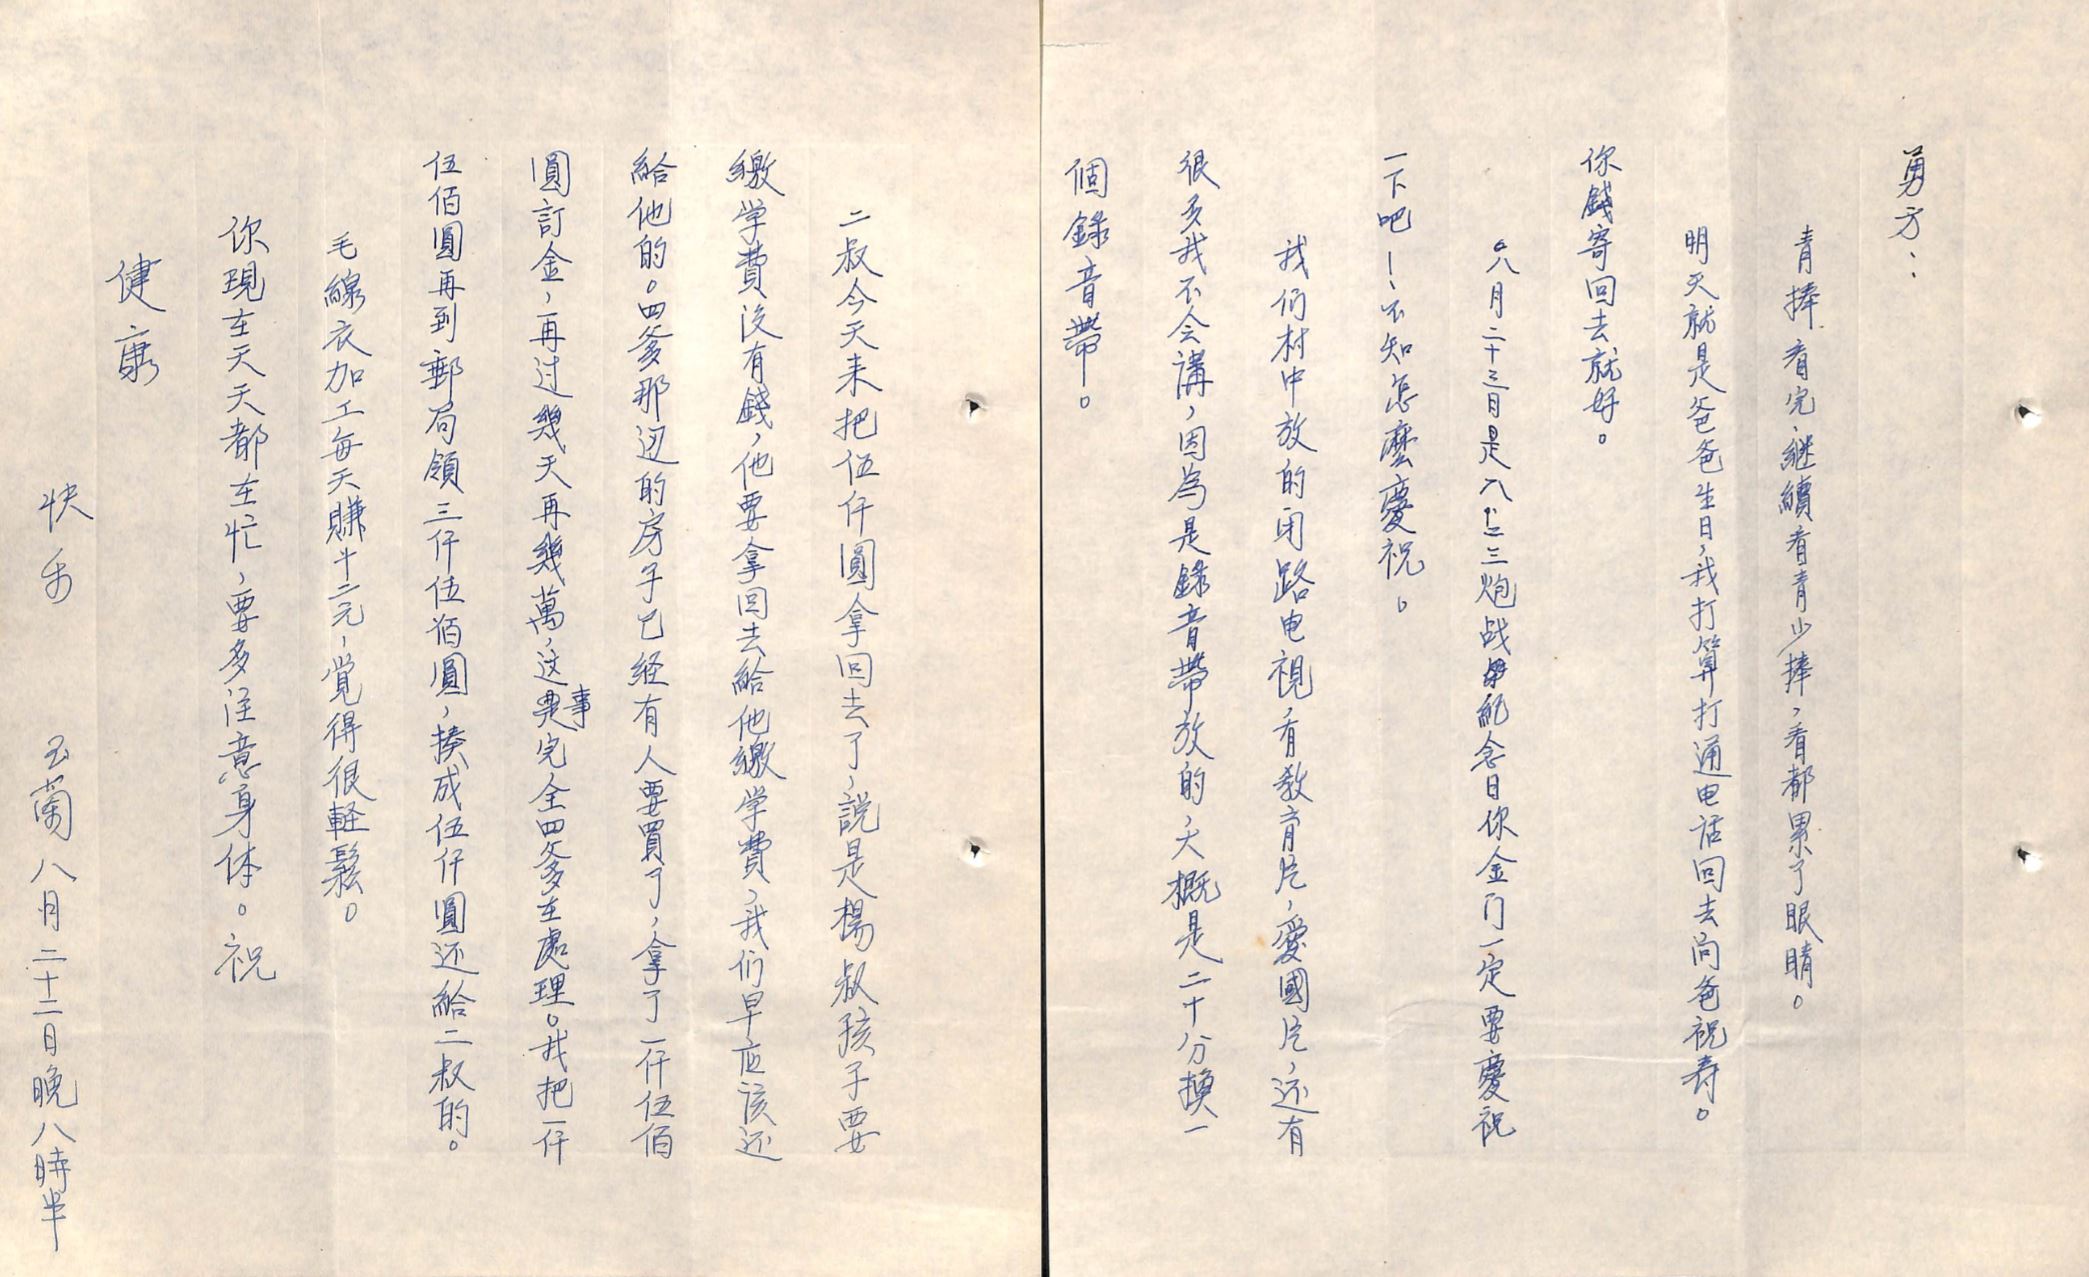 勇方：
青捧看完，継續看青少捧，看都累了眼睛。
明天就是爸爸生日，我打算打通电话回去向爸祝寿。
你錢寄回去就好。
八月二十三日是八二三炮战紀念日你金门一定要慶祝
一下吧！不知怎麼慶祝。
我们村中放的闭路电視，有教育片，愛國片，还有
很多我不会講，因為是錄音帶放的，大概是二十分換一
個錄音帶。
二叔今天来把伍仟圓拿回去了，説是楊叔孩子要
繳学費沒有錢，他要拿回去給他繳学費，我们早应该还
給他的。四爹那边的房子已経有人要買了，拿了一仟伍佰
圓訂金，再过幾天再幾萬，这事完全四爹在處理。我把一仟
伍佰圓再到郵局領三仟伍佰圓，揍成伍仟圓还給二叔的。
毛線衣加工每天賺十二元，覚得很軽鬆。
你現在天天都在忙，要多注意身体。祝
健康
快乐
玉蘭 八月二十二日晚八時半